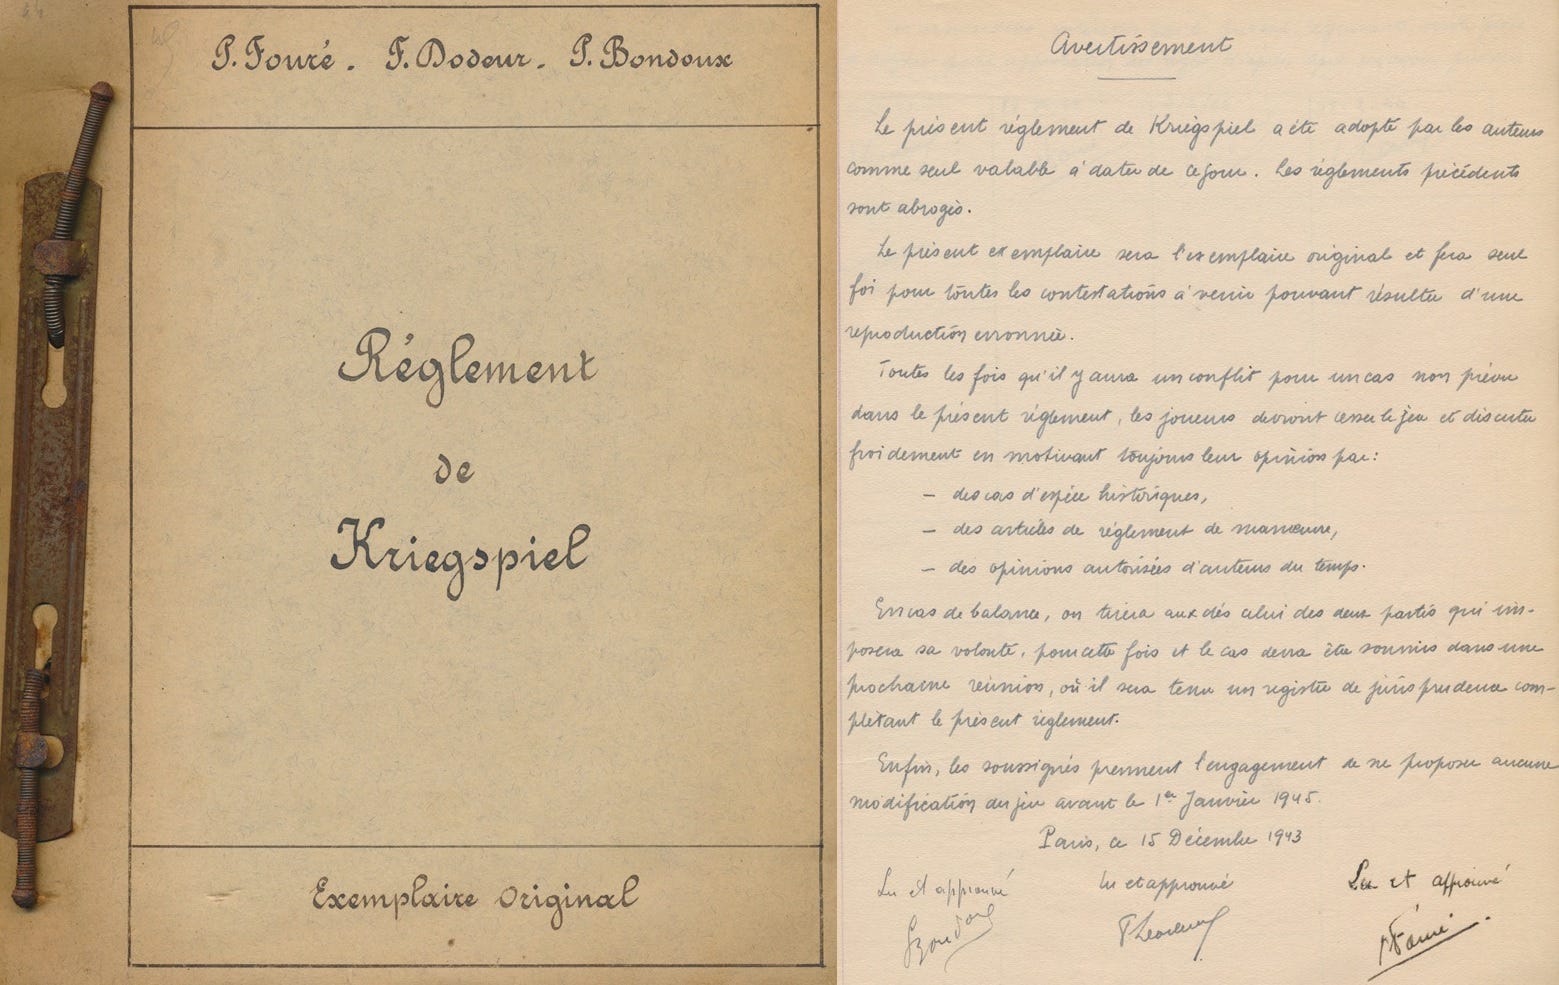 P. Fouré - F. Dodeur - P. Bondoux
Réglement
de
Kriegspiel
Exemplaire Original
Avertissement
Le présent réglement de Kriegspiel a été adopté par les auteurs
comme seul valable à dater de ce jour. Les réglements précédents
sont abrogés.
Le présent exemplaire sera l'exemplaire original et fera seul
foi pour toutes les contestations à venir pouvant résulter d'une
reproduction erronnée.
Toutes les fois qu'il y aura un conflit pour un cas non prévu
dans le présent réglement, les joueurs devront cesser le jeu et discuter
froidement en motivant toujours leur opinion par :
- des cas d'espèce historiques,
- des articles de réglement de manœuvre,
- des opinions autorisées d'auteurs du temps.
En cas de balance, on tirera aux dés celui des deux partis qui im-
posera sa volonté, pour cette fois et le cas devra être soumis dans une
prochaine réunion, où il sera tenu un registre de jurisprudence com-
plétant le présent réglement.
Enfin, les soussignés prennent l'engagement de ne proposer aucune
modification du jeu avant le 1er Janvier 1945.
Paris, ce 15 Décembre 1943
Lu et approuvé lu et approuvé Lu et approuvé